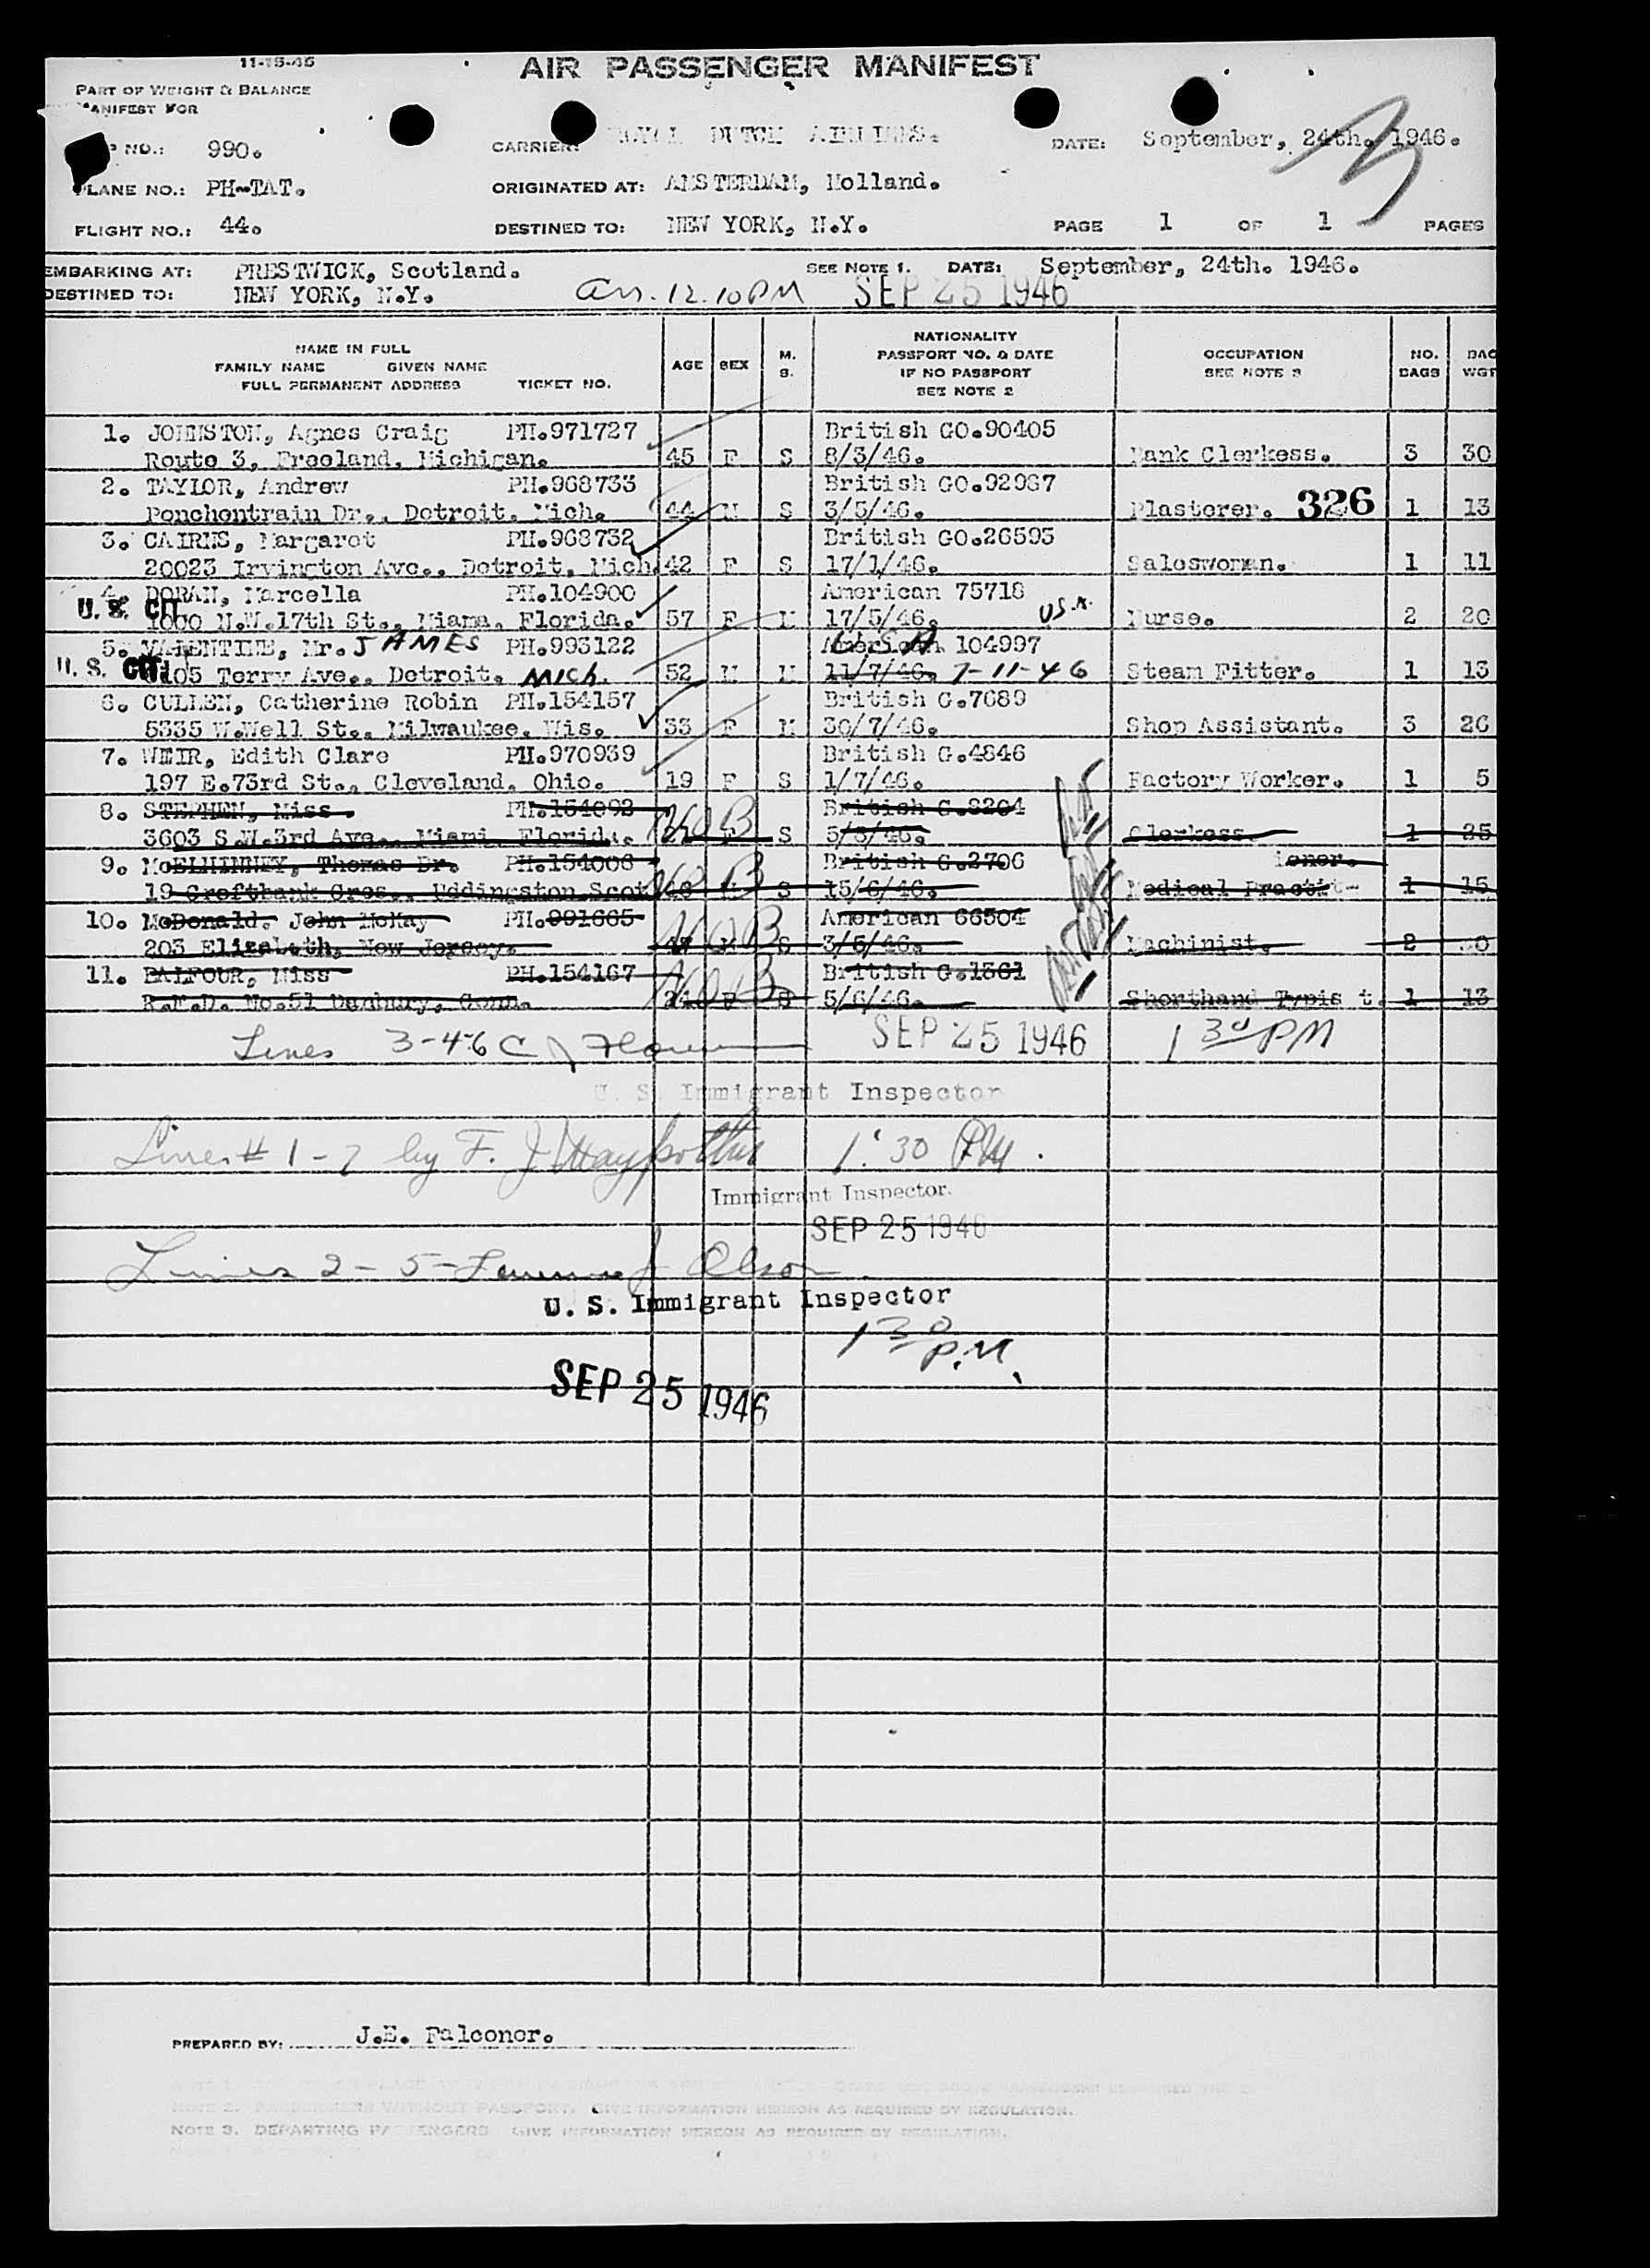 11-15-45
AIR PASSENGER MANIFEST
PART OF WEIGHT & BALANCE
MANIFEST FOR
NO.: 990.
CARRIER: ROYAL DUTCH AIRLINES.
DATE: September, 24th. 1946.
PLANE NO.: PH-TAT.
ORIGINATED AT: AMSTERDAM, Holland.
FLIGHT NO.: 44.
DESTINED TO: NEW YORK, N.Y.
PAGE 1 OF 1 PAGES
EMBARKING AT: PRESTWICK, Scotland.
SEE NOTE 1. DATE: September, 24th. 1946.
DESTINED TO: NEW YORK, N.Y.
arr. 12.10 PM SEP 25 1946
NAME IN FULL
FAMILY NAME GIVEN NAME
FULL PERMANENT ADDRESS TICKET NO.
AGE SEX M. S.
NATIONALITY
PASSPORT NO. & DATE
IF NO PASSPORT
SEE NOTE 2
OCCUPATION
SEE NOTE 3
NO. BAGS
BAG WGT
1. JOHNSTON, Agnes Craig PH.971727 British GO.90405
Route 3, Freeland, Michigan. 45 F S 8/3/46. Bank Clerkess. 3 30
2. TAYLOR, Andrew PH.968733 British GO.92987
Ponchontrain Dr., Detroit, Mich. 44 M S 3/5/46. Plasterer. 326 1 13
3. CAIRNS, Margaret PH.968732 British GO.26593
20023 Irvington Ave., Detroit, Mich. 42 F S 17/1/46. Saleswoman. 1 11
4. DORAN, Marcella PH.104900 American 75718
U. S. CIT. 1000 N.W.17th St., Miama, Florida. 57 F M 17/5/46. U.S.A. Nurse. 2 20
5. VALENTINE, Mr. JAMES PH.993122 American U.S.A 104997
U. S. CIT. 105 Terry Ave., Detroit. MICH. 52 M M 11/7/46. 7-11-46 Steam Fitter. 1 13
6. CULLEN, Catherine Robin PH.154157 British G.7689
5335 W.Well St., Milwaukee, Wis. 33 F M 30/7/46. Shop Assistant. 3 26
7. WEIR, Edith Clare PH.970939 British G.4846
197 E.73rd St., Cleveland, Ohio. 19 F S 1/7/46. Factory Worker. 1 5
8. STEPHEN, Miss PH.154092 British G.8204
3603 S.W.3rd Ave., Miami, Florida. NOB F S 5/3/46. Clerkess. 1 25
9. McELHINNEY, Thomas Dr. PH.154006 British G.2706
19 Croftbank Cres., Uddingston Scot NOB M S 15/6/46. Medical Practitioner. 1 15
10. McDonald. John McKay PH.991665 American 66504
203 Elizabeth, New Jersey. NOB M S 3/6/46. Machinist. 2 30
11. BALFOUR, Miss PH.154167 British G.1561
R.F.D. No.51 Danbury, Conn. 24 NOB F S 5/6/46. Shorthand Typist. 1 13
Not on board
Lines 3-4-6 C J SEP 25 1946 1 30 PM
U. S. Immigrant Inspector
Lines # 1-7 by F. J. 1:30 PM.
Immigrant Inspector.
SEP 25 1946
Lines 2-5- J Olson
U. S. Immigrant Inspector
1 30 P.M.
SEP 25 1946
PREPARED BY: J.E. Falconer.
NOTE 2. PASSENGERS WITHOUT PASSPORT, GIVE INFORMATION HEREON AS REQUIRED BY REGULATION.
NOTE 3. DEPARTING PASSENGERS GIVE INFORMATION HEREON AS REQUIRED BY REGULATION.